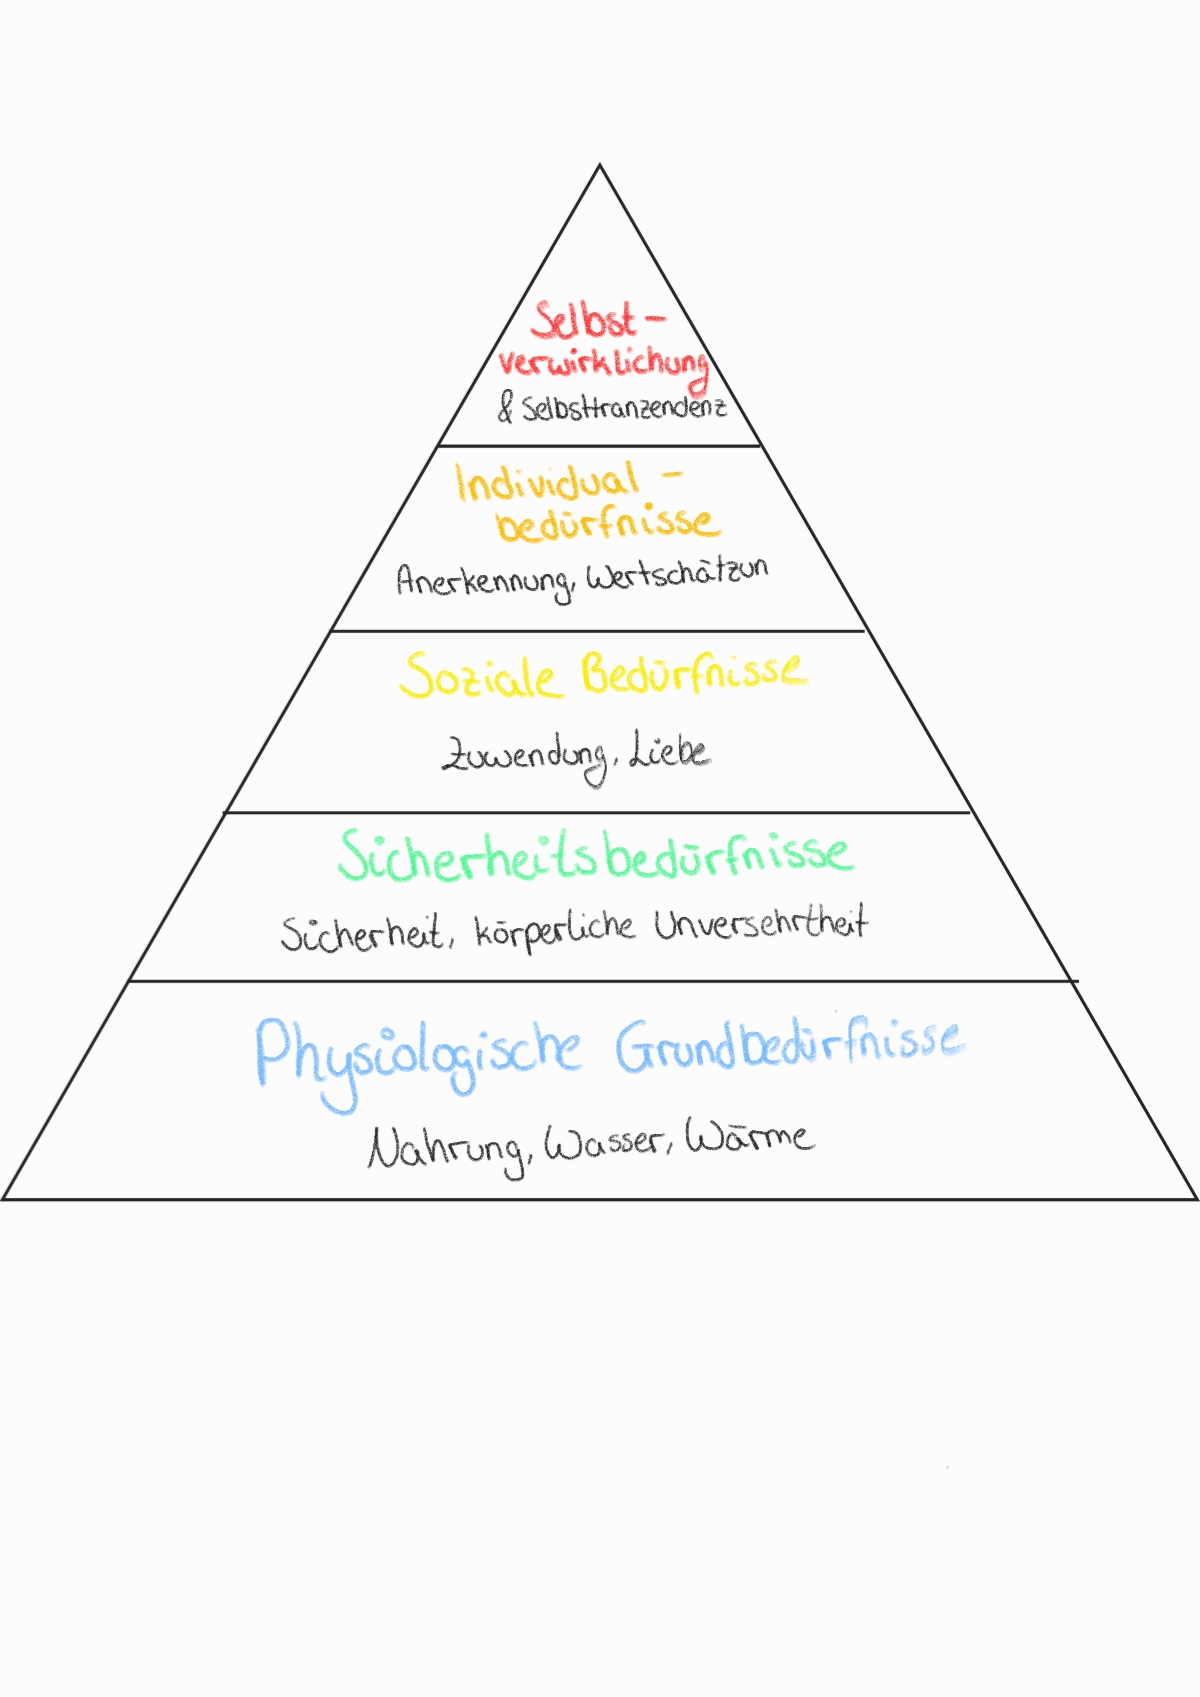 Selbst-
verwirklichung
& Selbsttranzendenz
Individual-
bedürfnisse
Anerkennung, Wertschätzun
Soziale Bedürfnisse
Zuwendung, Liebe
Sicherheitsbedürfnisse
Sicherheit, körperliche Unversehrtheit
Physiologische Grundbedürfnisse
Nahrung, Wasser, Wärme